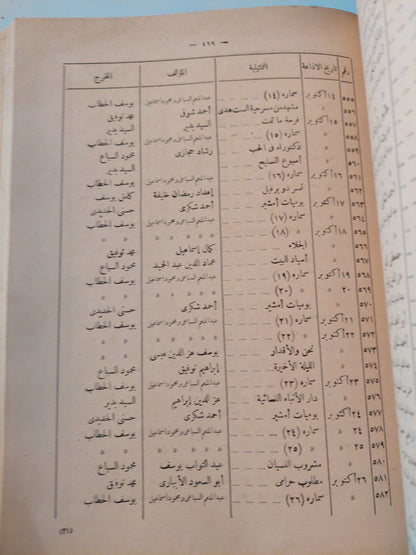 — ٤٦٦ —
رقم تاريخ الاذاعة التمثيلية المؤلف المخرج
٥٥٥ ١٤ أكتوبر سماره (١٤) عبد المنعم السباعى ومحمود اسماعيل يوسف الحطاب
٥٥٦ » مشهد من مسرحية الست هدى أحمد شوقى محمد توفيق
٥٥٧ ١٥ أكتوبر فرحة ما تمت السيد بدير السيد بدير
٥٥٨ » سماره (١٥) عبد المنعم السباعى ومحمود اسماعيل يوسف الحطاب
٥٥٩ » دكتوراه فى الحب رشاد حجازى محمود السباع
٥٦٠ » أسبوع التسابيح السيد بدير
٥٦١ ١٦ أكتوبر سماره (١٦) عبد المنعم السباعى ومحمود اسماعيل يوسف الحطاب
٥٦٢ » إعداد رمضان خليفة كامل يوسف
٥٦٣ ١٧ أكتوبر يوميات أمشير أحمد شكرى حسنى الحديدى
٥٦٤ » سماره (١٧) عبد المنعم السباعى ومحمود اسماعيل يوسف الحطاب
٥٦٥ ١٨ أكتوبر » (١٨) » » » »
٥٦٦ » الجلاء كمال إسماعيل محمد توفيق
٥٦٧ » أسياد البيت عماد الدين عبد الحميد محمود السباع
٥٦٨ ١٩ أكتوبر سماره (١٩) عبد المنعم السباعى ومحمود اسماعيل يوسف الحطاب
٥٦٩ ٢٠ » » (٢٠) » » » »
٥٧٠ » يوميات أمشير أحمد شكرى حسنى الحديدى
٥٧١ ٢١ أكتوبر سماره (٢١) عبد المنعم السباعى ومحمود اسماعيل يوسف الحطاب
٥٧٢ ٢٢ أكتوبر » (٢٢) » » » »
٥٧٣ » نحن والأقدار يوسف عز الدين عيسى
٥٧٤ » الليلة الأخيرة إبراهيم توفيق محمود السباع
٥٧٥ ٢٣ أكتوبر سماره (٢٣) عبد المنعم السباعى ومحمود اسماعيل يوسف الحطاب
٥٧٦ » دار الأنباء النسائية عز الدين إبراهيم السيد بدير
٥٧٧ ٢٤ أكتوبر يوميات أمشير أحمد شكرى حسنى الحديدى
٥٧٨ ٢٤ » سماره (٢٤) عبد المنعم السباعى ومحمود اسماعيل يوسف الحطاب
٥٧٩ ٢٥ » » (٢٥) » » » »
٥٨٠ » مشروب النسيان عبد التواب يوسف محمود السباع
٥٨١ ٢٦ أكتوبر مطلوب حرامى أبو السعود الأبيارى محمد توفيق
٥٨٢ » سماره (٢٦) عبد المنعم السباعى ومحمود اسماعيل يوسف الحطاب